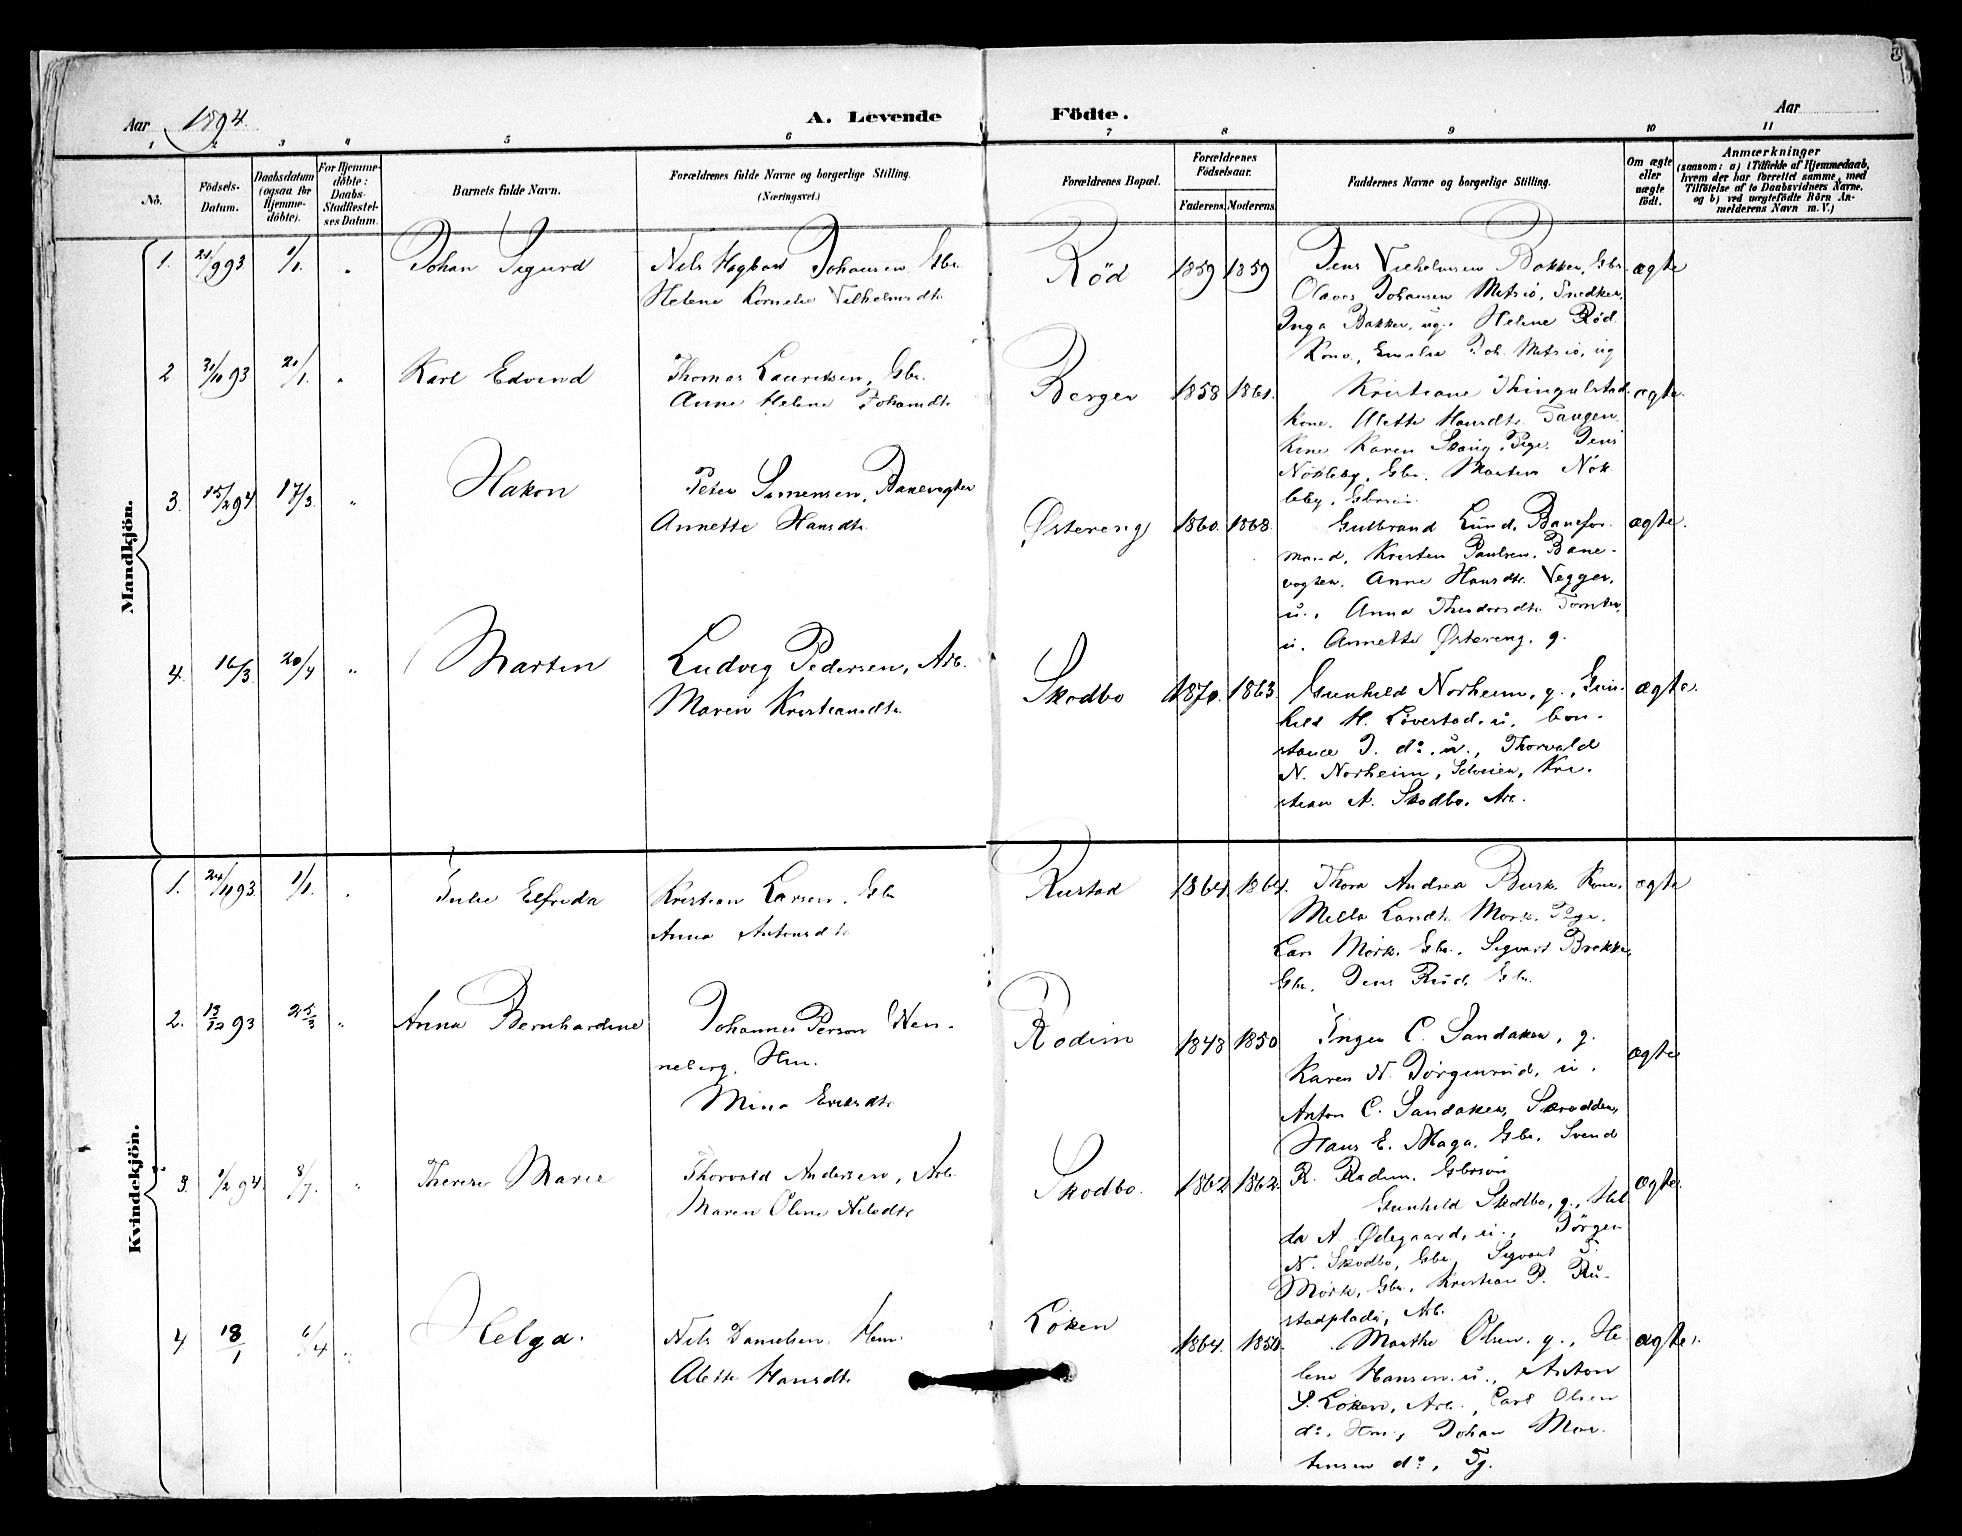 Aar 1894.
A. Levende Födte.
Aar
3
1 2 3 4 5 6 7 8 9 10 11
Nö.
Födsels-Datum.
Daabsdatum (ogsaa för Hjemme-döbte).
For Hjemme-döbte: Daabs-Stadfæstel-ses Datum.
Barnets fulde Navn.
Forældrenes fulde Navne og borgerlige Stilling. (Næringsvei.)
Forældrenes Bopæl.
Forældrenes Födselsaar.
Faderens. Moderens.
Faddernes Navne og borgerlige Stilling.
Om ægte eller uægte födt.
Anmærkninger
(saasom: a) i Tilfælde af Hjemmedaab, hvem der har forrettet samme, med Tilföielse af to Daabsvidners Navne. og b) ved uægtefödte Börn An-melderens Navn m. V.)
Mandkjön.
1. 21/9 93 1/1. " Johan Sigurd
Nils Hagbart Johansen, Gbr.
Helene Kornelie Vilhelmsdtr.
Rød 1859 1859
Jens Vilhelmsen Bakken, Gbr.
Olaves Johansen Metsiö, Snedker,
Inga Bakken, ug., Helene Rød
Kone, Emilie Joh. Metsiö, ug
ægte
2 31/10 93 20/1. " Karl Edvind
Thomas Lauritsen, Gbr.
Anne Helene Johansdtr.
Berger 1858 1861.
Kristiane Thingulstad
Kone, Alette Hansdtr. Taugen
Kone Karen Skaug, Pige. Jens
Nökleby, Gbr. Martin Nök
leby, Gbrsön.
ægte.
3. 15/2 94 17/3. " Hakon
Peter Simensen, Banevogter
Annette Hansdtr.
Østereng 1860. 1868.
Gulbrand Lund, Banefor-
mand, Kristen Paulsen, Bane-
vogter, Anne Hansdtr. Vegger,
u., Anna Theodorsdtr. Tomter,
u. Annette Østereng, g.
ægte.
4. 16/3 20/4 " Martin
Ludvig Pedersen, Arb.
Maren Kristiansdtr.
Skodbo 1870. 1863.
Gunhild Norheim, g., Gun-
hild H. Løvestad, u, Con-
stance J. do. u., Thorvald
N. Norheim, Selveier, Kri-
stian A. Skodbo, Arb.
ægte.
Kvindekjön.
1. 24/11 93. 1/1. " Julie Elfrida
Kristian Larsen, Gbr
Anna Antonsdtr
Rustad 1864. 1864.
Thora Andrea Busk Kone,
Mella Landt. Mørk. Pige.
Lars Mørk. Gbr. Sigvart Brekke,
Gbr. Jens Rud, Gbr.
ægte
2. 13/12 93 25/3 " Anna Bernhardine
Johannes Person Wen-
neberg, Hm.
Mina Eriksdtr.
Rodim 1848 1850
Inger C. Sandaker, g.
Karen N. Jörgenrud, u.
Anton C. Sandaker, Særodden,
Hans E. Haga, Gbr. Svend
R. Rodim, Gbrsön
ægte
3. 1/2 94. 8/7. " Therese Marie
Thorvald Andersen, Arb.
Maren Oline Nilsdtr
Skodbo. 1862 1862.
Gunhild Skodbo, g., Hil
da A Ødegaard, u., Jörgen
N. Skodbo, Gbr, Sigvart T.
Mørk, Gbr, Kristian P. Ru-
stadplads, Arb.
ægte.
4 18/1 6/4 " Helga.
Nils Danielsen, Hm.
Alette Hansdtr.
Løken 1864. 1850.
Marthe Olsen, g., He-
lene Hansen, u., Anton
S. Løken, Arb., Carl Olsen
do., Hm., Johan Mor-
tensen do., Tj.
ægte.